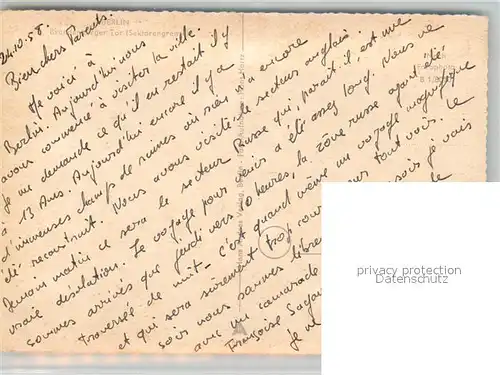 24.10.58.
BERLIN
Brandenburger Tor (Sektorengrenze)
Bien chers Parents.
Me voici à
Berlin. Aujourd'hui nous
avons commencé à visiter la ville.
Je me demande ce qu'il en restait il y
a 13 Ans. Aujourd'hui encore il y a
d'immenses champs de ruines où rien n'a encore
été reconstruit. Nous avons visité le secteur anglais.
Demain matin ce sera le secteur Russe qui, paraît il, est une
vraie désolation. Le voyage pour venir a été assez long. Nous ne
sommes arrivés que jeudi vers 10 heures, la zône russe ayant été
traversée de nuit - C'est quand même un voyage magnifique
et qui sera sûrement trop court pour tout voir. Ce
soir nous sommes libres soir je vais
avec un camarade de
Françoise Sagan
Je
privacy protection
Datenschutz